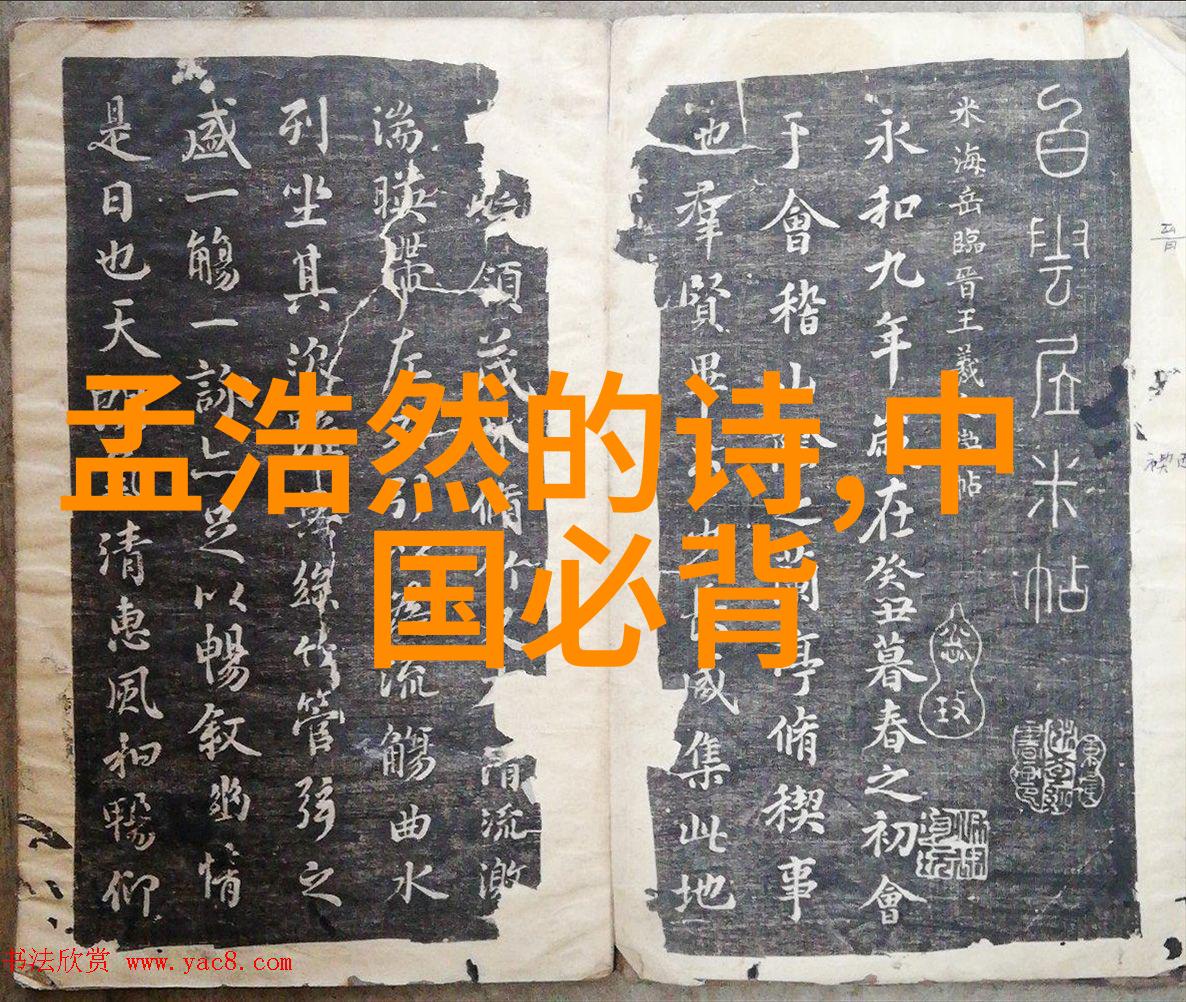 孟浩然的诗,中
国必背
白雲居米帖
米海岳臨晉王羲帖
永和九年歲在癸丑暮春之初會
于會稽山陰之蘭亭脩稧事
也羣賢畢至少長咸集此地
領茂林脩竹又清流激
湍暎帶左右引以為流觴曲水
列坐其次雖無絲竹管弦之
盛一觴一詠亦足以暢敘幽情
是日也天朗氣清惠風和暢仰
书法欣赏 www.yac8.com